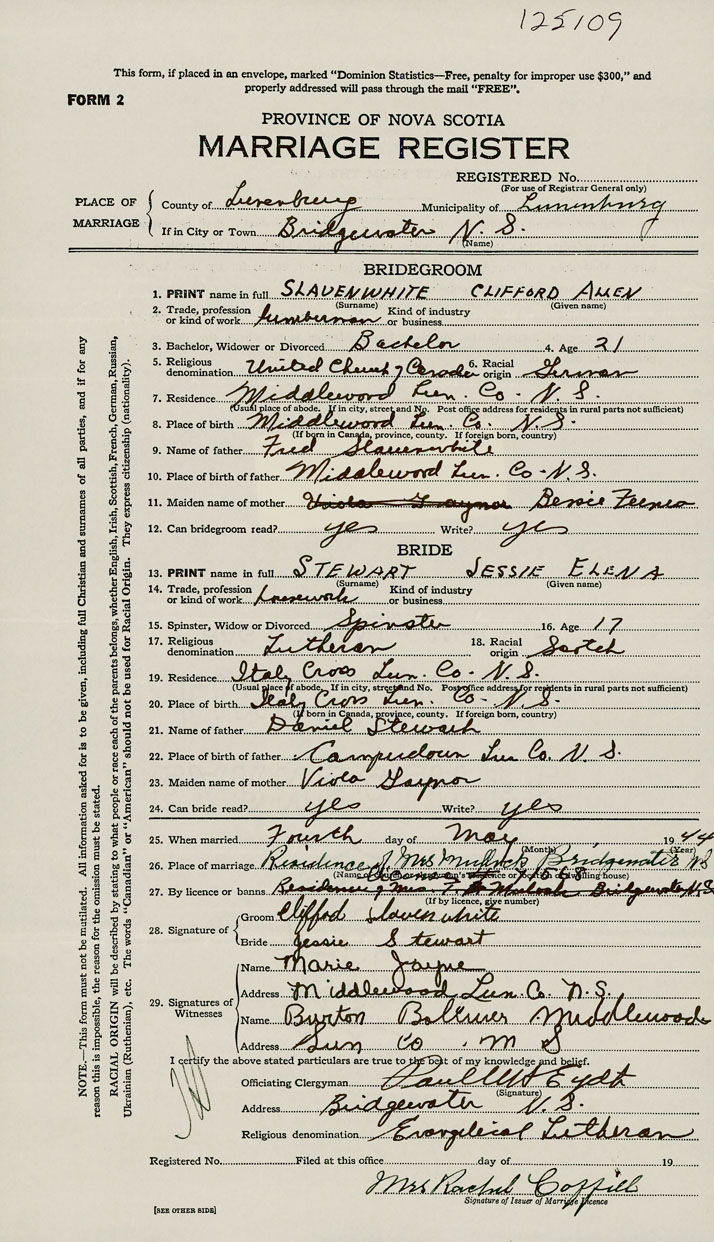 125109
This form, if placed in an envelope, marked "Dominion Statistics—Free, penalty for improper use $300," and
properly addressed will pass through the mail "FREE".
FORM 2
PROVINCE OF NOVA SCOTIA
MARRIAGE REGISTER
REGISTERED No.
(For use of Registrar General only)
PLACE OF MARRIAGE
County of Lunenburg Municipality of Lunenburg
If in City or Town Bridgewater N. S.
(Name)
BRIDEGROOM
1. PRINT name in full SLAVENWHITE CLIFFORD ALLEN
(Surname) (Given name)
2. Trade, profession or kind of work lumberman Kind of industry or business
3. Bachelor, Widower or Divorced Bachelor 4. Age 21
5. Religious denomination United Church of Canada 6. Racial origin German
7. Residence Middlewood Lun. Co. N. S.
(Usual place of abode. If in city, street and No. Post office address for residents in rural parts not sufficient)
8. Place of birth Middlewood Lun. Co. N. S.
(If born in Canada, province, county. If foreign born, country)
9. Name of father Fred Slauenwhite
10. Place of birth of father Middlewood Lun. Co - N. S.
11. Maiden name of mother Viola Gaynor Bessie
12. Can bridegroom read? yes Write? yes
BRIDE
13. PRINT name in full STEWART JESSIE ELENA
(Surname) (Given name)
14. Trade, profession or kind of work housework Kind of industry or business
15. Spinster, Widow or Divorced Spinster 16. Age 17
17. Religious denomination Lutheran 18. Racial origin Scotch
19. Residence Italy Cross Lun. Co - N. S.
(Usual place of abode. If in city, street and No. Post office address for residents in rural parts not sufficient)
20. Place of birth Italy Cross Lun. Co - N. S.
(If born in Canada, province, county. If foreign born, country)
21. Name of father Daniel Stewart
22. Place of birth of father Camperdown Lun Co. N. S.
23. Maiden name of mother Viola Gaynor
24. Can bride read? yes Write? yes
25. When married Fourth day of May, 1944
(Month) (Year)
26. Place of marriage Residence of Mrs Mulock Bridgewater NS
27. By licence or banns Residence of Mrs. T. Mulock Bridgewater N.S
(If by licence, give number)
28. Signature of
Groom Clifford Slavenwhite
Bride Jessie Stewart
29. Signatures of Witnesses
Name Marie Jayne
Address Middlewood Lun. Co. N. S.
Name Burton Bolivar Middlewood
Address Lun Co. N S
I certify the above stated particulars are true to the best of my knowledge and belief.
Officiating Clergyman Eydt
(Signature)
Address Bridgewater N. S.
Religious denomination Evangelical Lutheran
Registered No. Filed at this office day of 19
Mrs Rachel Coffill
Signature of Issuer of Marriage Licence
[SEE OTHER SIDE]
NOTE.—This form must not be mutilated. All information asked for is to be given, including full Christian and surnames of all parties, and if for any
reason this is impossible, the reason for the omission must be stated.
RACIAL ORIGIN will be described by stating to what people or race each of the parents belongs, whether English, Irish, Scottish, French, German, Russian,
Ukrainian (Ruthenian), etc. The words "Canadian" or "American" should not be used for Racial Origin. They express citizenship (nationality).